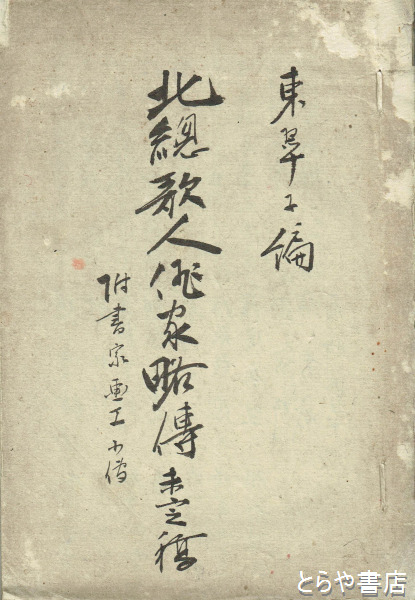 東翠子編
北總歌人俳家略傳 未定稿
附書家画工小傳
とらや書店